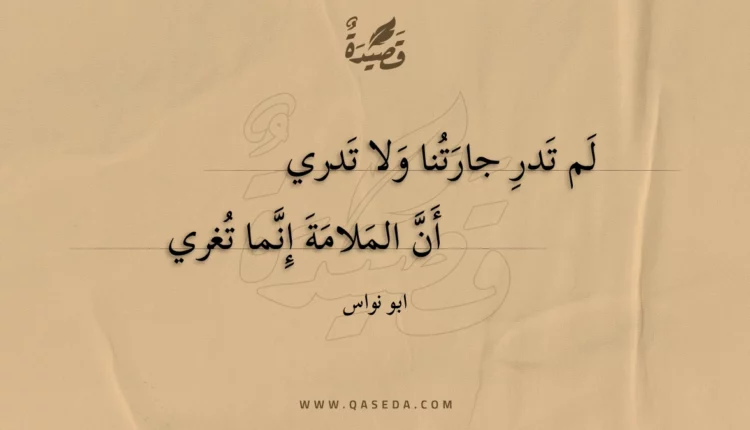 قَصِيدَةٌ
لَم تَدرِ جارَتُنا وَلا تَدري
أَنَّ المَلامَةَ إِنَّما تُغري
ابو نواس
WWW.QASEDA.COM